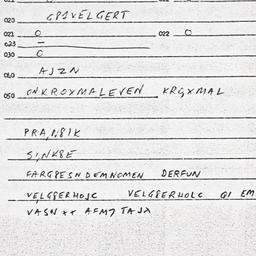 020 GPIVELGERT
021 0 022 0
023 —
030 0
040 AJZN
050 ONKROXMALEVEN KRGXMAL
SINKSE
FARGPESNDEMNOMEN DERFUN
VELGPERHOJC VELGPERHOLC GI EM
VASN ++ AFM7 TAJX